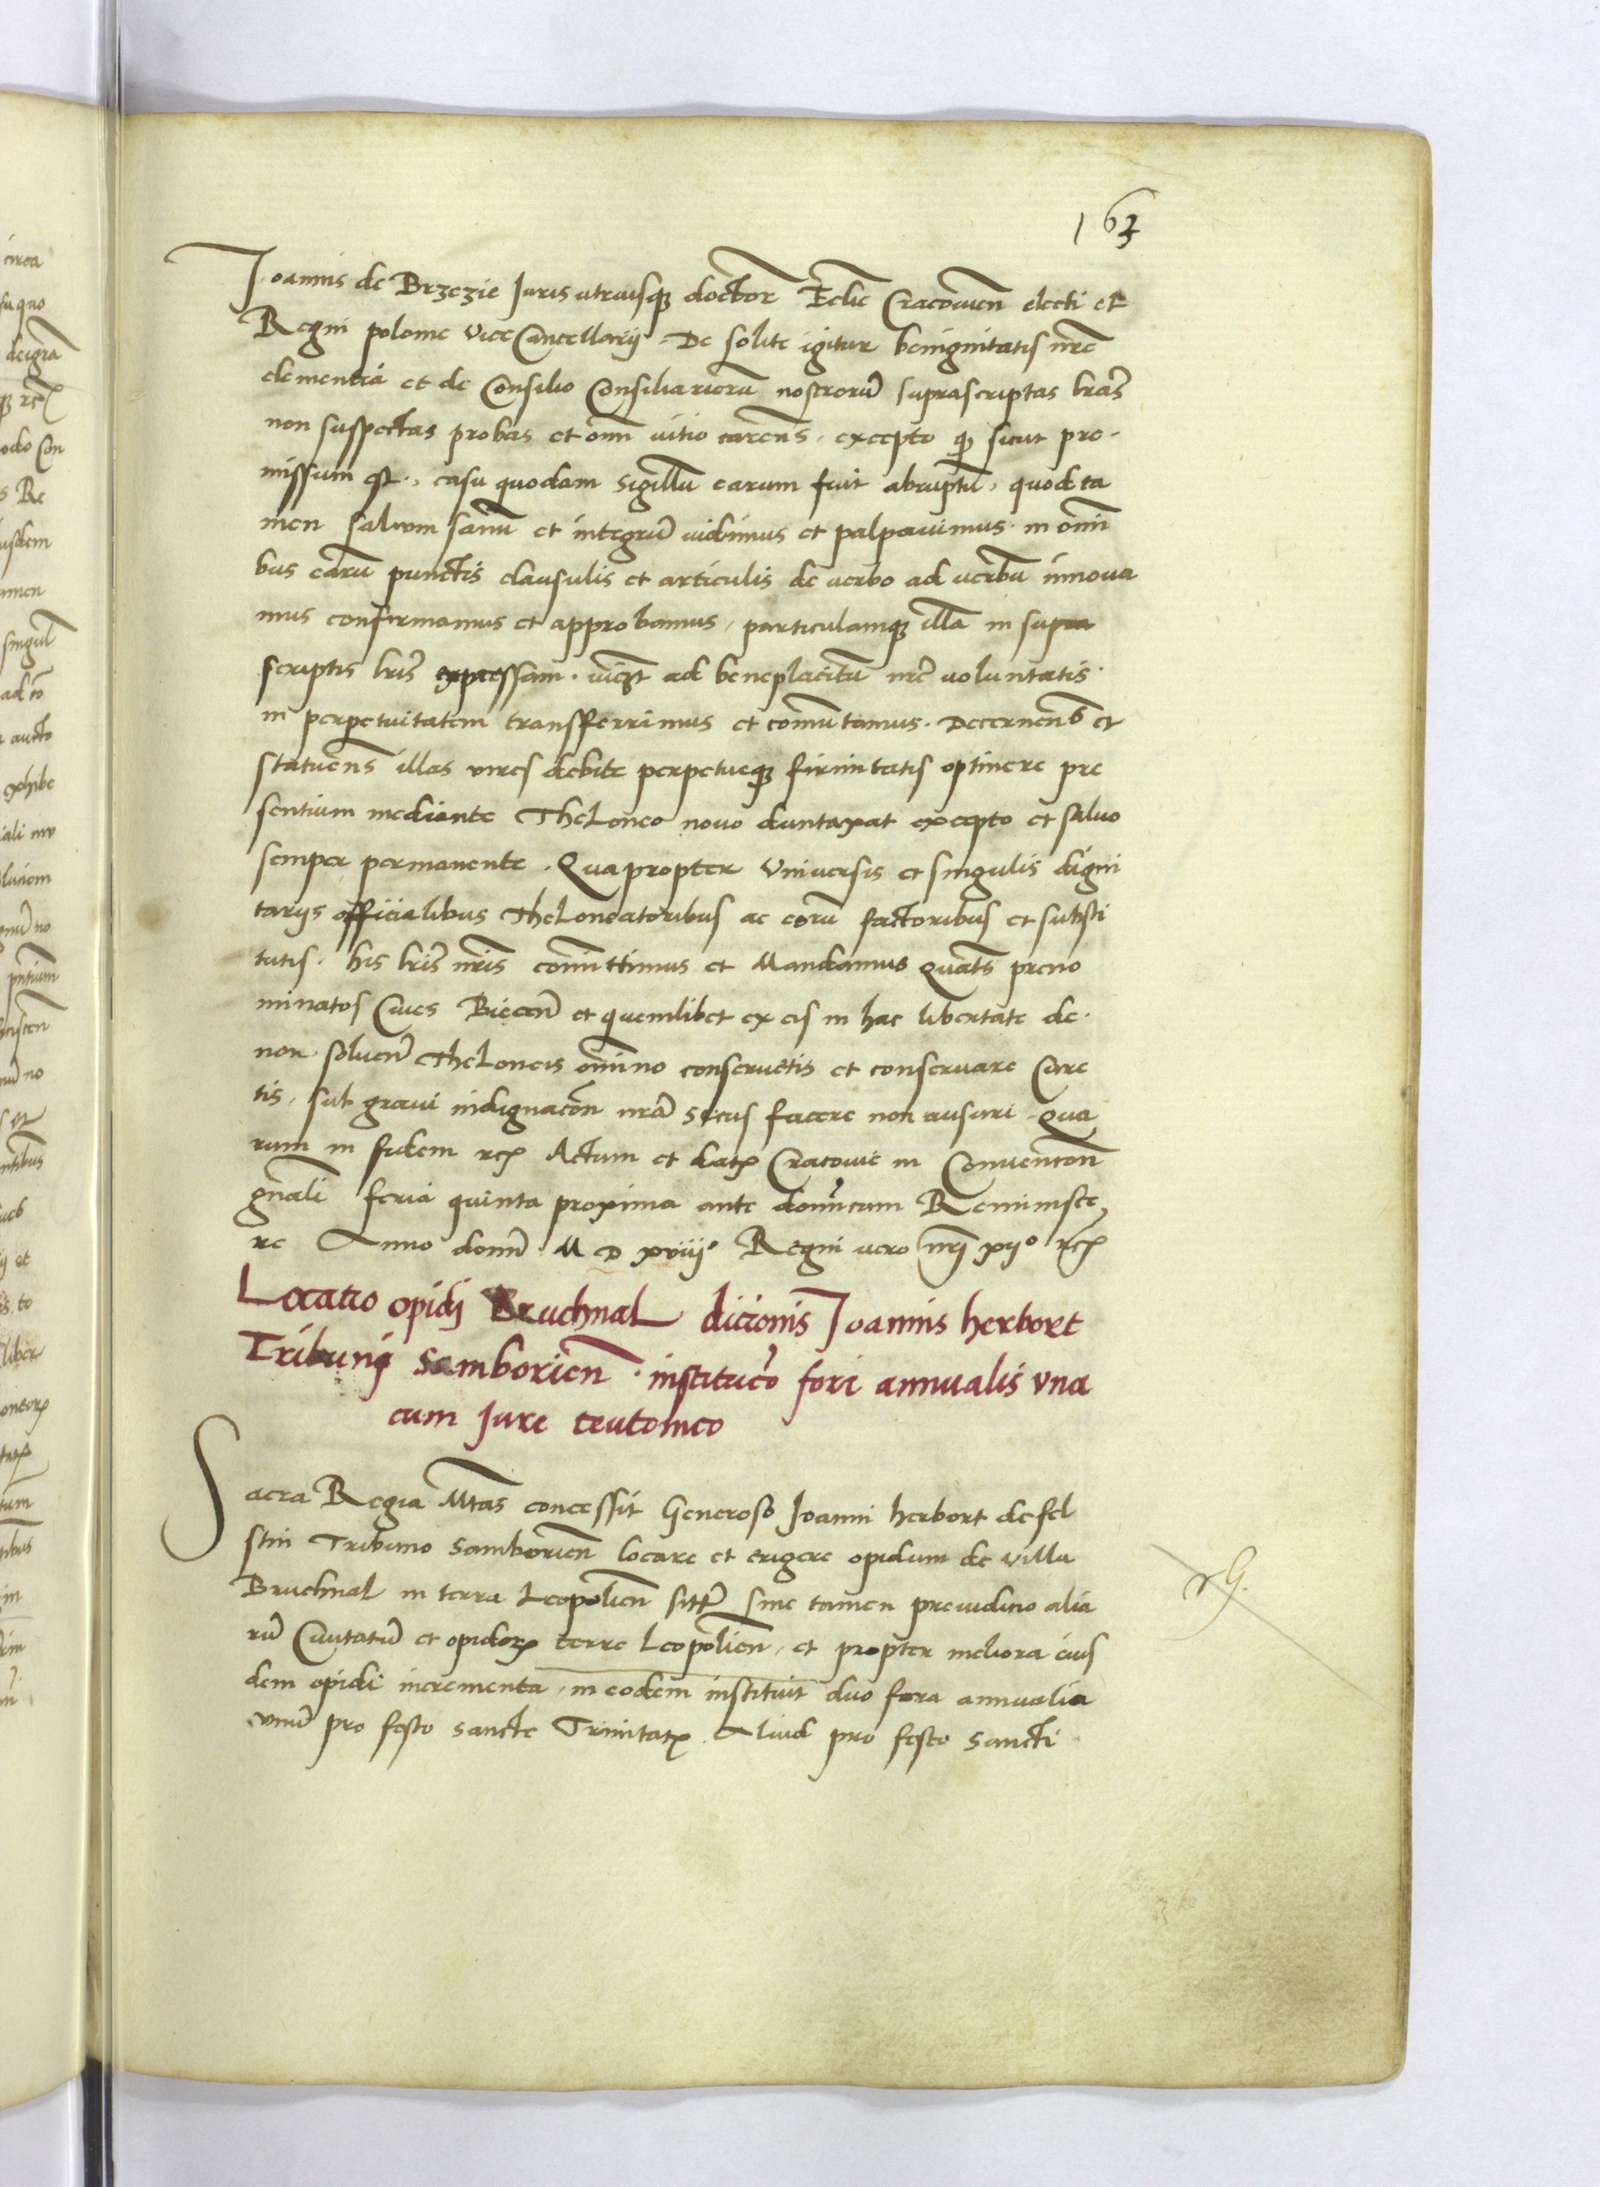 163
Joannis de Brzezie Juris utriusq doctor Eclie Cracovien electi et
Regni polonie ViceCancellarij . De solite igitur benignitatis nre
clementia et de Consilio Consiliariorum nostrorum suprascriptas lras
non suspectas probas et omni vitio carens . excepto q sicut pre-
missum est . casu quodam sigillum earum fuit abruptum , quod ta
men salvum sanum et integrum vidimus et palpavimus . in omni
bus earum punctis clausulis et articulis de verbo ad verbum innova
mus confirmamus et approbamus , particulamq illa in supra
scriptis lris expressam . vicz ad beneplacitum nre voluntatis
in perpetuitatem transferrimus et comutamus . Decernens et
statuens illas vires debite perpetueq firmitatis optinere pre
sentium mediante TheLoneo novo duntaxat excepto et salvo
semper permanente . Quapropter Universis et singulis digni
tariis officialibus TheLoneatoribus ac eorum factoribus et substi
tutis . his lris nris comittimus et Mandamus Quats preno
minatos Cives Biecen et quemlibet ex eis in hac libertate de
non solven TheLoneis omnino conservetis et conservare Cure
tis , sub gravi indignacon nra secus facere non ausuri . Qua
rum in fidem rc Actum et dat Cracovie in Convencon
gnali feria quinta proxima ante dominicam Reminisce
re Anno domi M D xviii° Regni vero nri xii° rc
Locatio opidi Bruchnal dicionis Joannis herbort
Tribuni Samborien . institucio fori annualis una
cum Jure teutonico
Sacra Regia Mtas concessit Generoso Joanni herbort de fel
stin Tribuno Samborien locare et erigere opidum de villa
Bruchnal in terra Leopolien sitt sine tamen preiudicio alia
rum Civitatum et opidor terre Leopolien , et propter meliora eius
dem opidi incrementa , in eodem instituit duo fora annualia
unum pro festo sancte Trinitatis . Aliud pro festo sancti